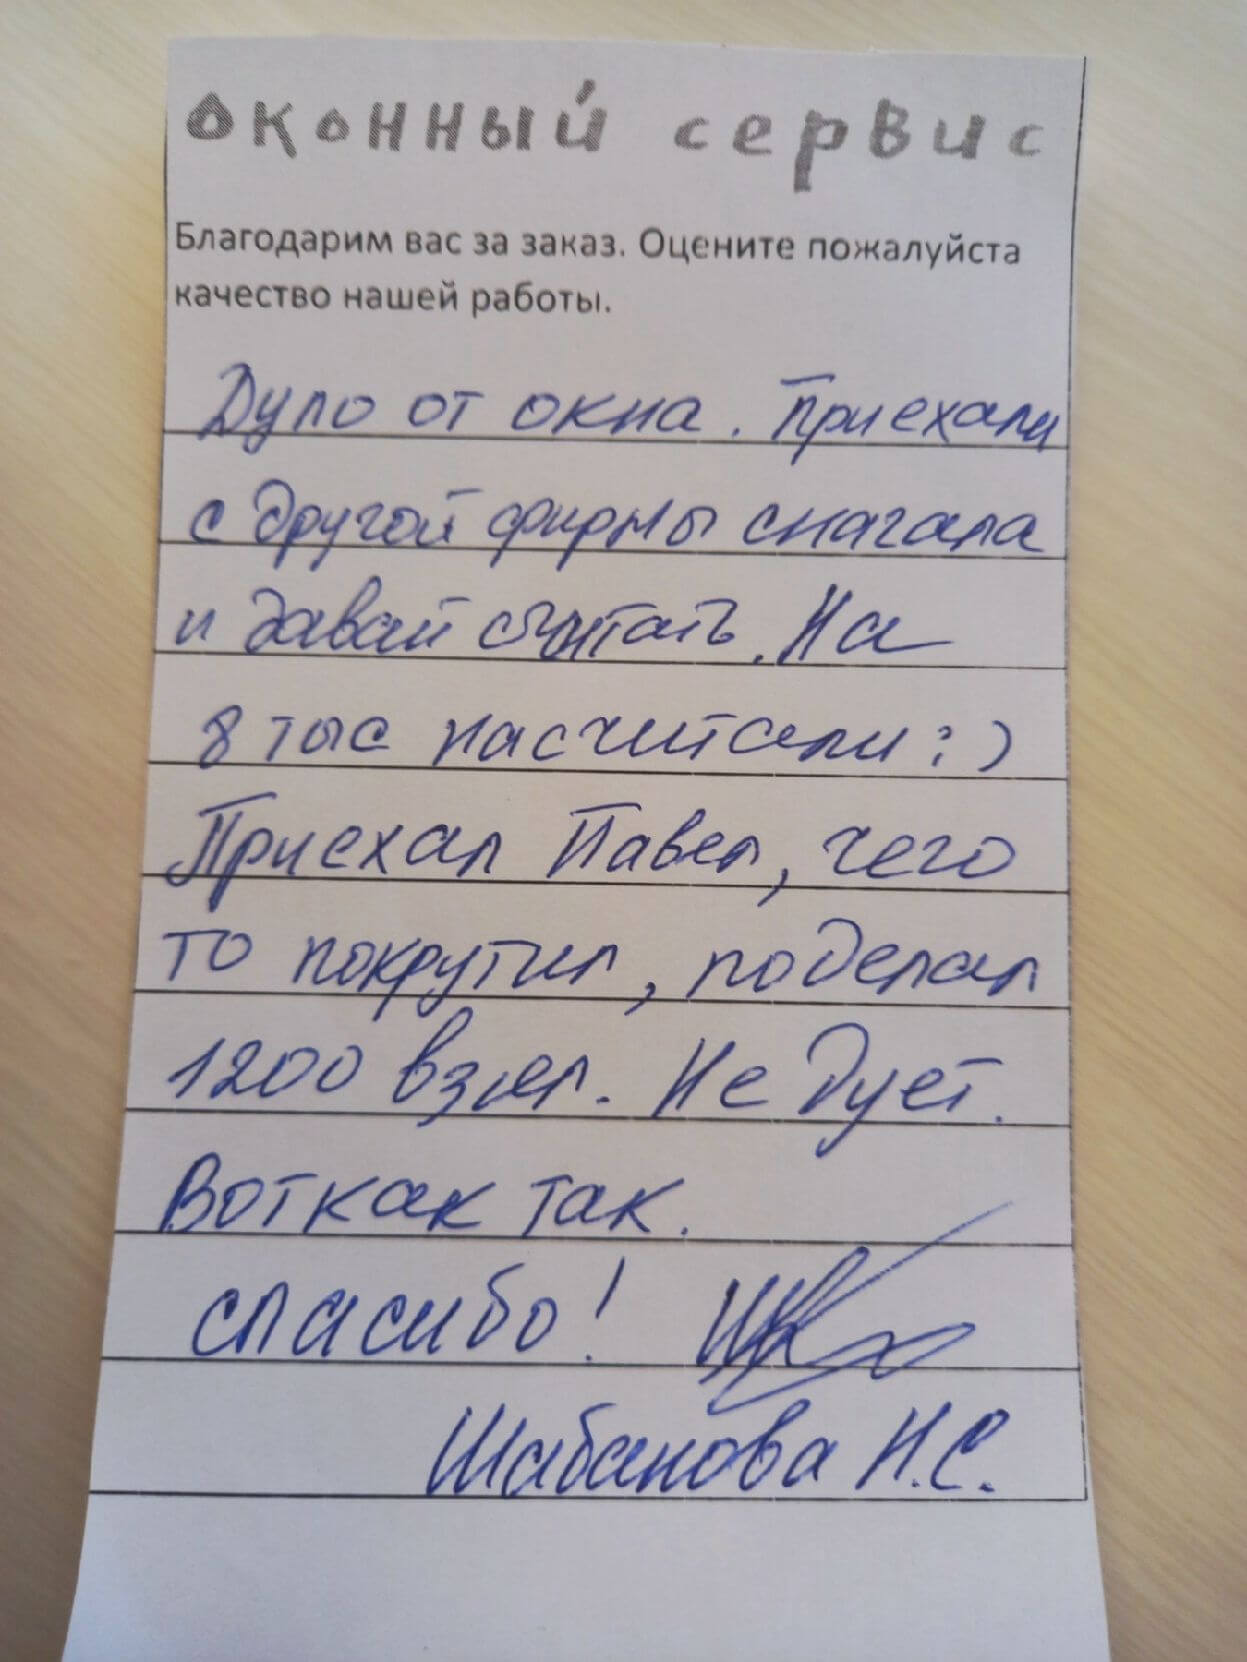 Оконный сервис
Благодарим вас за заказ. Оцените пожалуйста
качество нашей работы.
Дуло от окна. Приехали
с другой фирмы сначала
и давай считать. На
8 тыс насчитали :)
Приехал Павел, чего
то покрутил, поделал
1200 взял. Не дует.
Вот как так.
спасибо!
Шабанова Н.С.